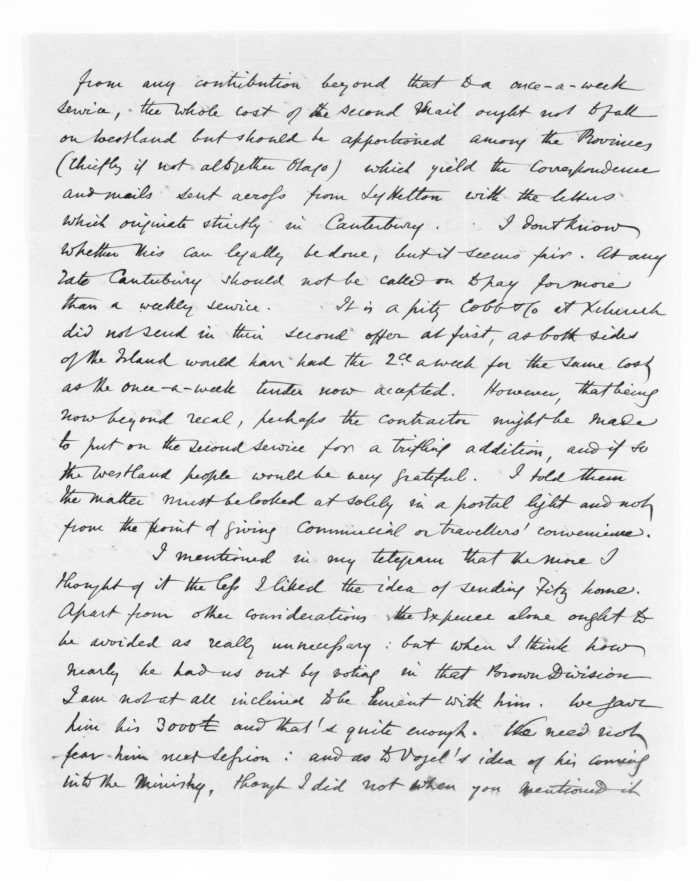 from any contribution beyond that to a once-a-week
service, the whole cost of the second mail ought not to fall
on Westland but should be apportioned among the Provinces
(chiefly if not altogether Otago) which yield the correspondence
and mails sent across from Lyttelton with the letters
which originate strictly in Canterbury. I don't know
whether this can legally be done, but it seems fair. At any
rate Canterbury should not be called on to pay for more
than a weekly service. It is a pity Cobb & Co at Xchurch
did not send in their second offer at first, as both sides
of the Island would have had the 2ce a week for the same cost
as the once-a-week tender now accepted. However, that being
now beyond recal, perhaps the contractor might be made
to put on the second service for a trifling addition, and if so
the Westland people would be very grateful. I told them
the matter must be looked at solely in a postal light and not
from the point of giving commercial or travellers' convenience.
I mentioned in my telegram that the more I
thought of it the less I liked the idea of sending Fitz home.
Apart from other considerations the Expence alone ought to
be avoided as really unnecessary: but when I think how
nearly he had us out by voting in that Brown Division
I am not at all inclined to be lenient with him. We gave
him his 3000£ and that's quite enough. We need not
fear him next session: and as to Vogel's idea of his coming
into the Ministry, though I did not when you mentioned it